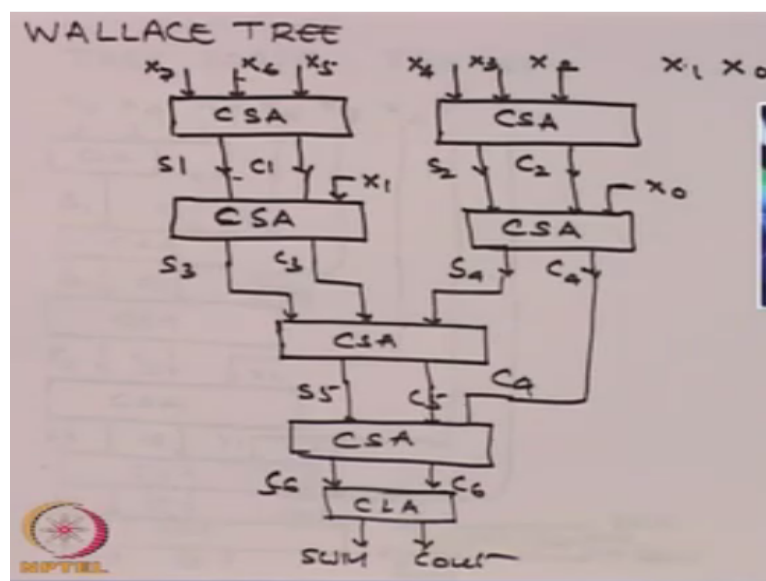 WALLACE TREE
X7 X6 X5 X4 X3 X2 X1 X0
CSA CSA
S1 C1 X1 S2 C2 X0
CSA CSA
S3 C3 S4 C4
CSA
S5 C5 C4
CSA
S6 C6
CLA
SUM Cout
NPTEL